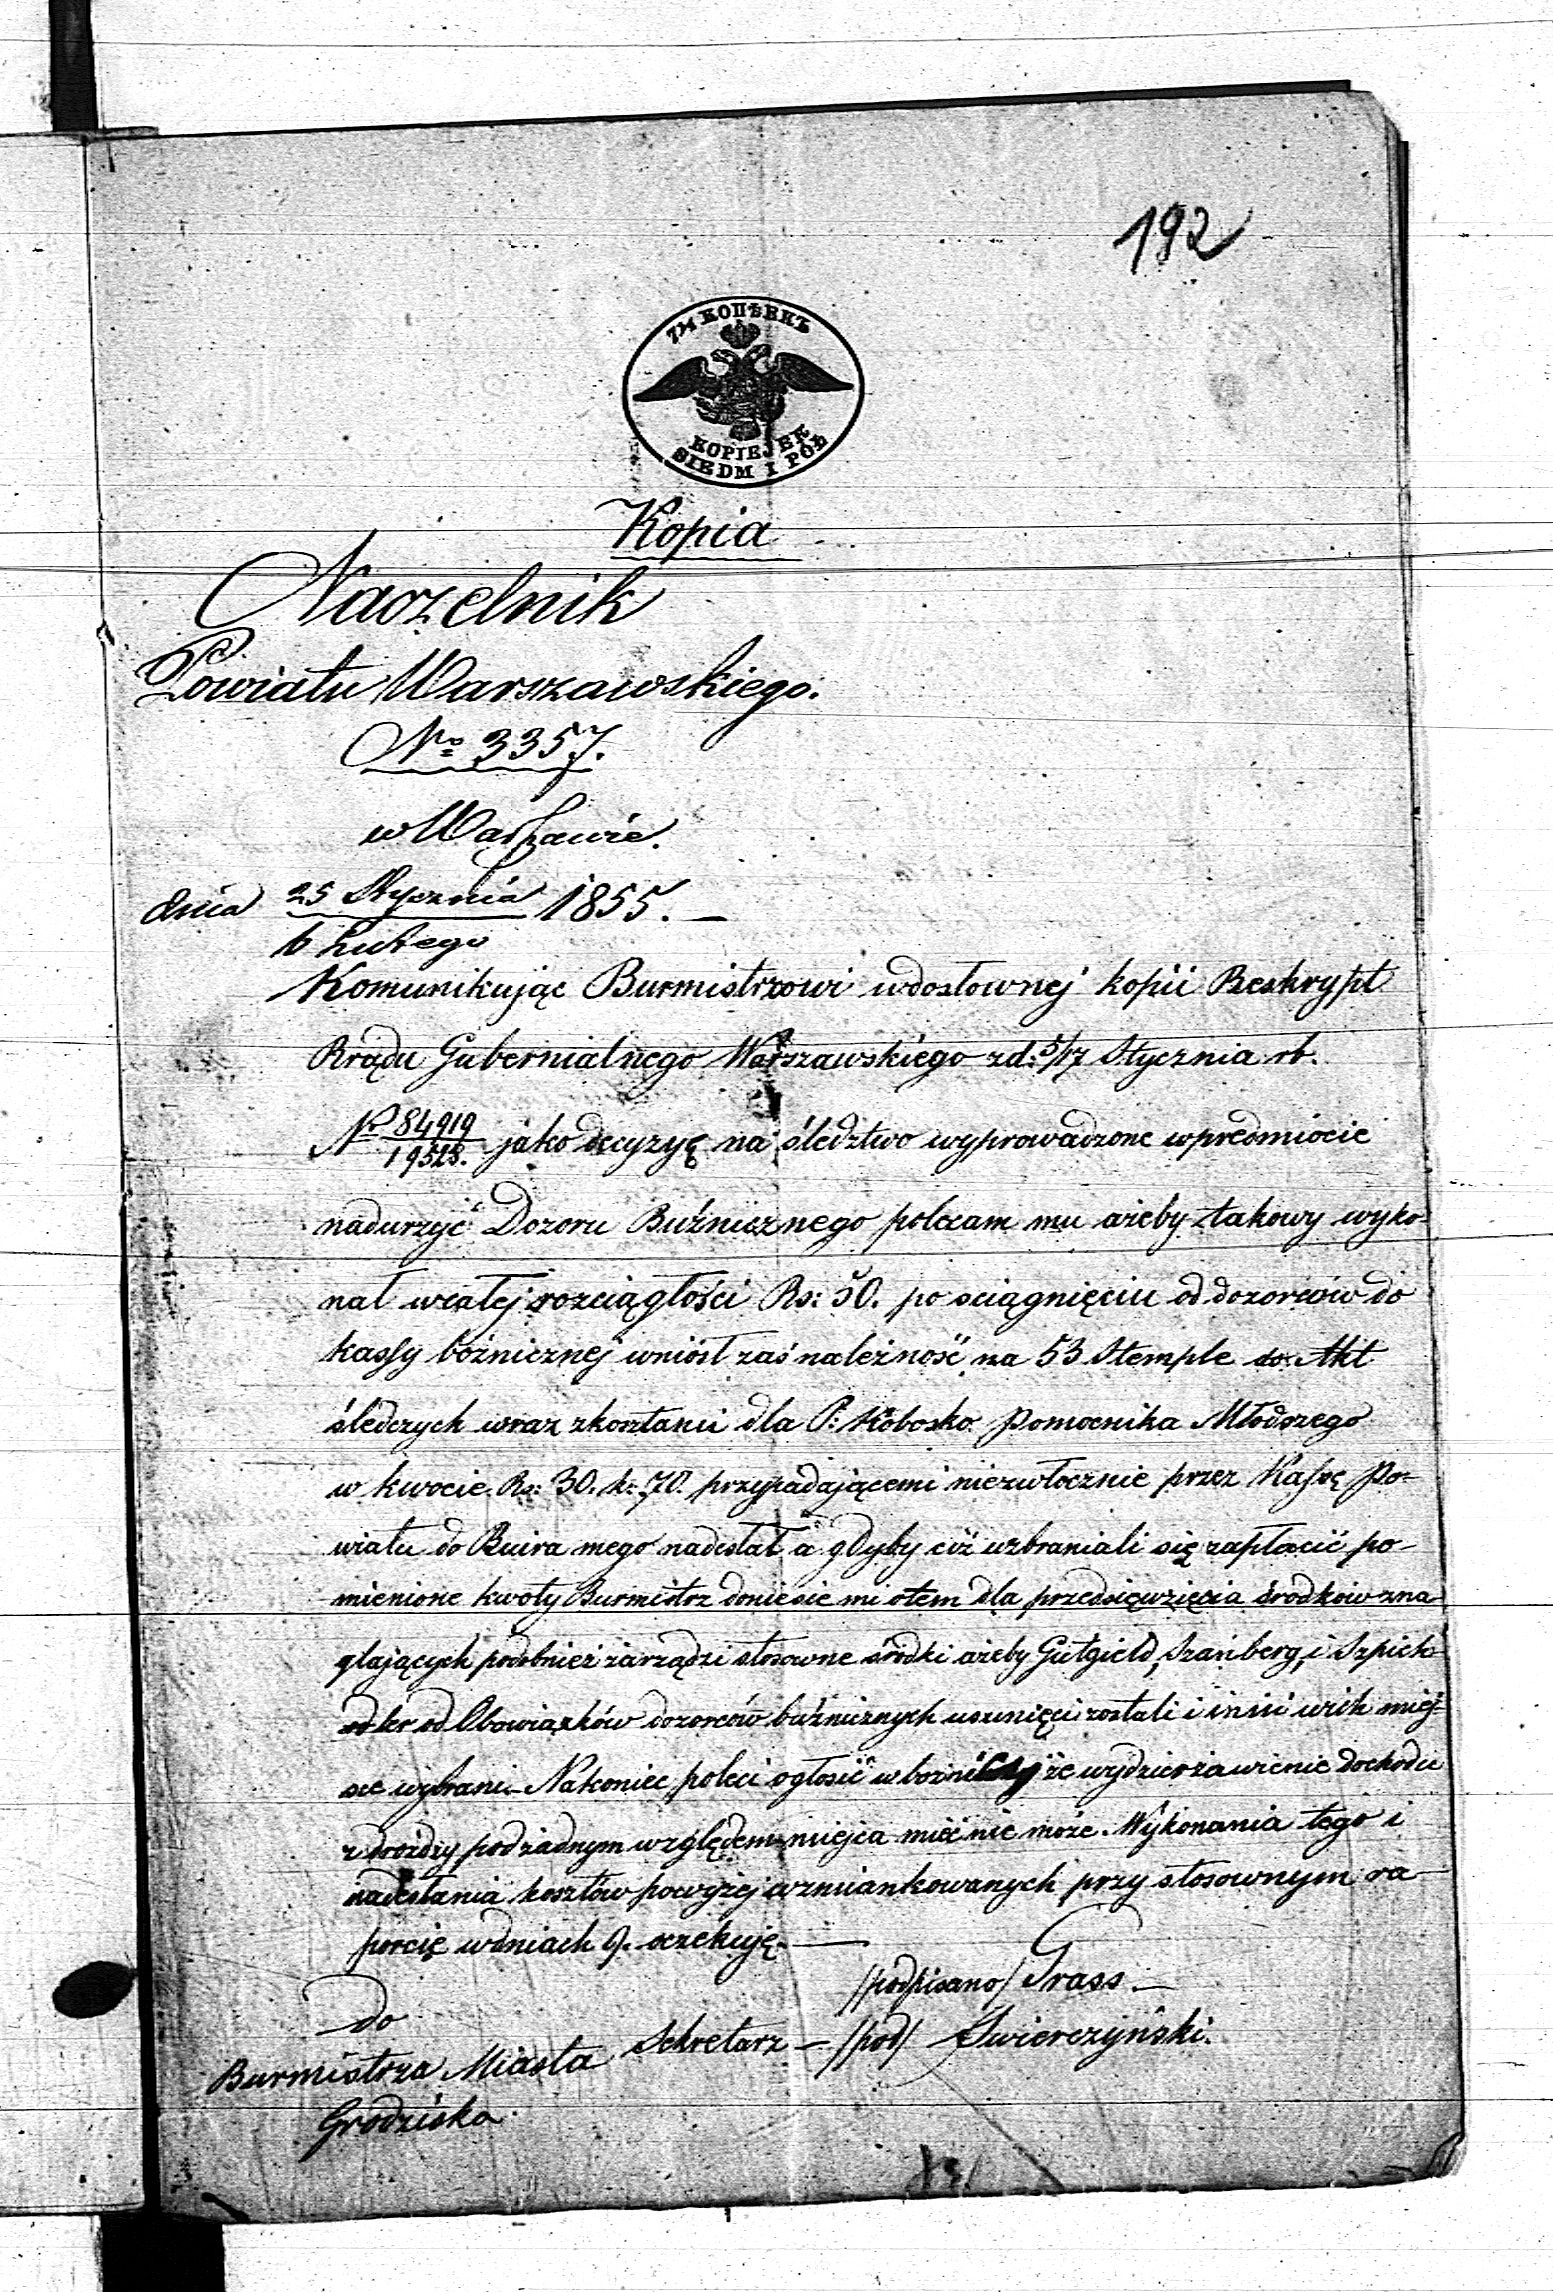 192
7½ КОПѢЕКЪ
KOPIEJEK
SIEDM I PÓŁ
Kopia
Naczelnik
Powiatu Warszawskiego.
No 3357.
w Warszawie.
dnia 25 Stycznia 1855. —
6 Lutego
Komunikując Burmistrzowi wdosłownej kopii Reskrypt
Rządu Gubernialnego Warszawskiego zd: 5/17 Stycznia rb.
No 84919
19525. jako decyzyę na śledztwo wyprowadzone wprzedmiocie
nadurzyć Dozoru Buźnicznego polecam mu ażeby takowy wyko-
nał wcałej rozciągłości Rs: 50. po sciągnięciu od dozorców do
kassy bóżnicznej wniósł zaś należność na 53 Stemple do Akt
śledczych wraz zkosztami dla P: Kobosko Pomocnika Młodszego
w kwocie Rs: 30. k: 70. przypadającemi niezwłocznie przez Kassę Po-
wiatu do Buira mego nadesłał a gdyby ciż wzbraniali się zapłacić po-
mienione kwoty Burmistrz doniesie mi otem dla przedsięwzięcia środków zna
glających podobnież zarządzi stosowne środki ażeby Gutgield, Szanberg, i Szpick
od Obowiązków dozorców buźnicznych usunięci zostali i inni wich miej-
sce wybrani – Nakoniec poleci ogłosić w bożnicy że wydzierżawienie dochodu
z drożdży podżadnym względem miejsca mieć nie może. Wykonania tego i
nadesłania kosztów powyżej wzmiankowanych przy stosownym ra-
porcie wdniach 9. oczekuję. —
/podpisano/ Grass. —
do
Sekretarz – /pod/ Swierczyński.
Burmistrza Miasta
Grodziska.